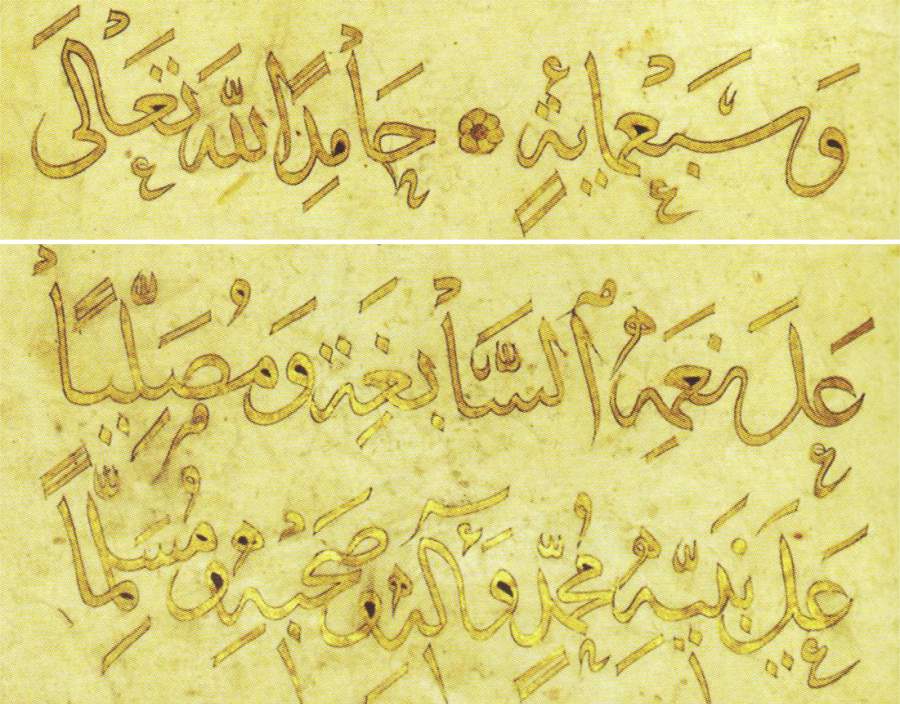 وَسَبْعِمايةٍ حامِدًا للهِ تَعَالى
عَلَى نِعَمِهِ السَّابِغَةِ وَمُصَلِّيًا
عَلَى نَبِيِّهِ مُحَمَّدٍ وَآلِهِ وَصَحْبِهِ وَمُسَلِّمًا